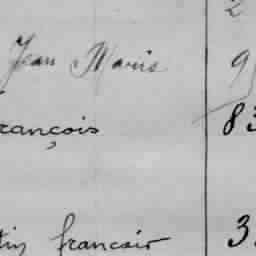 2
Jean Marie 9
rançois 83
tin francois 3